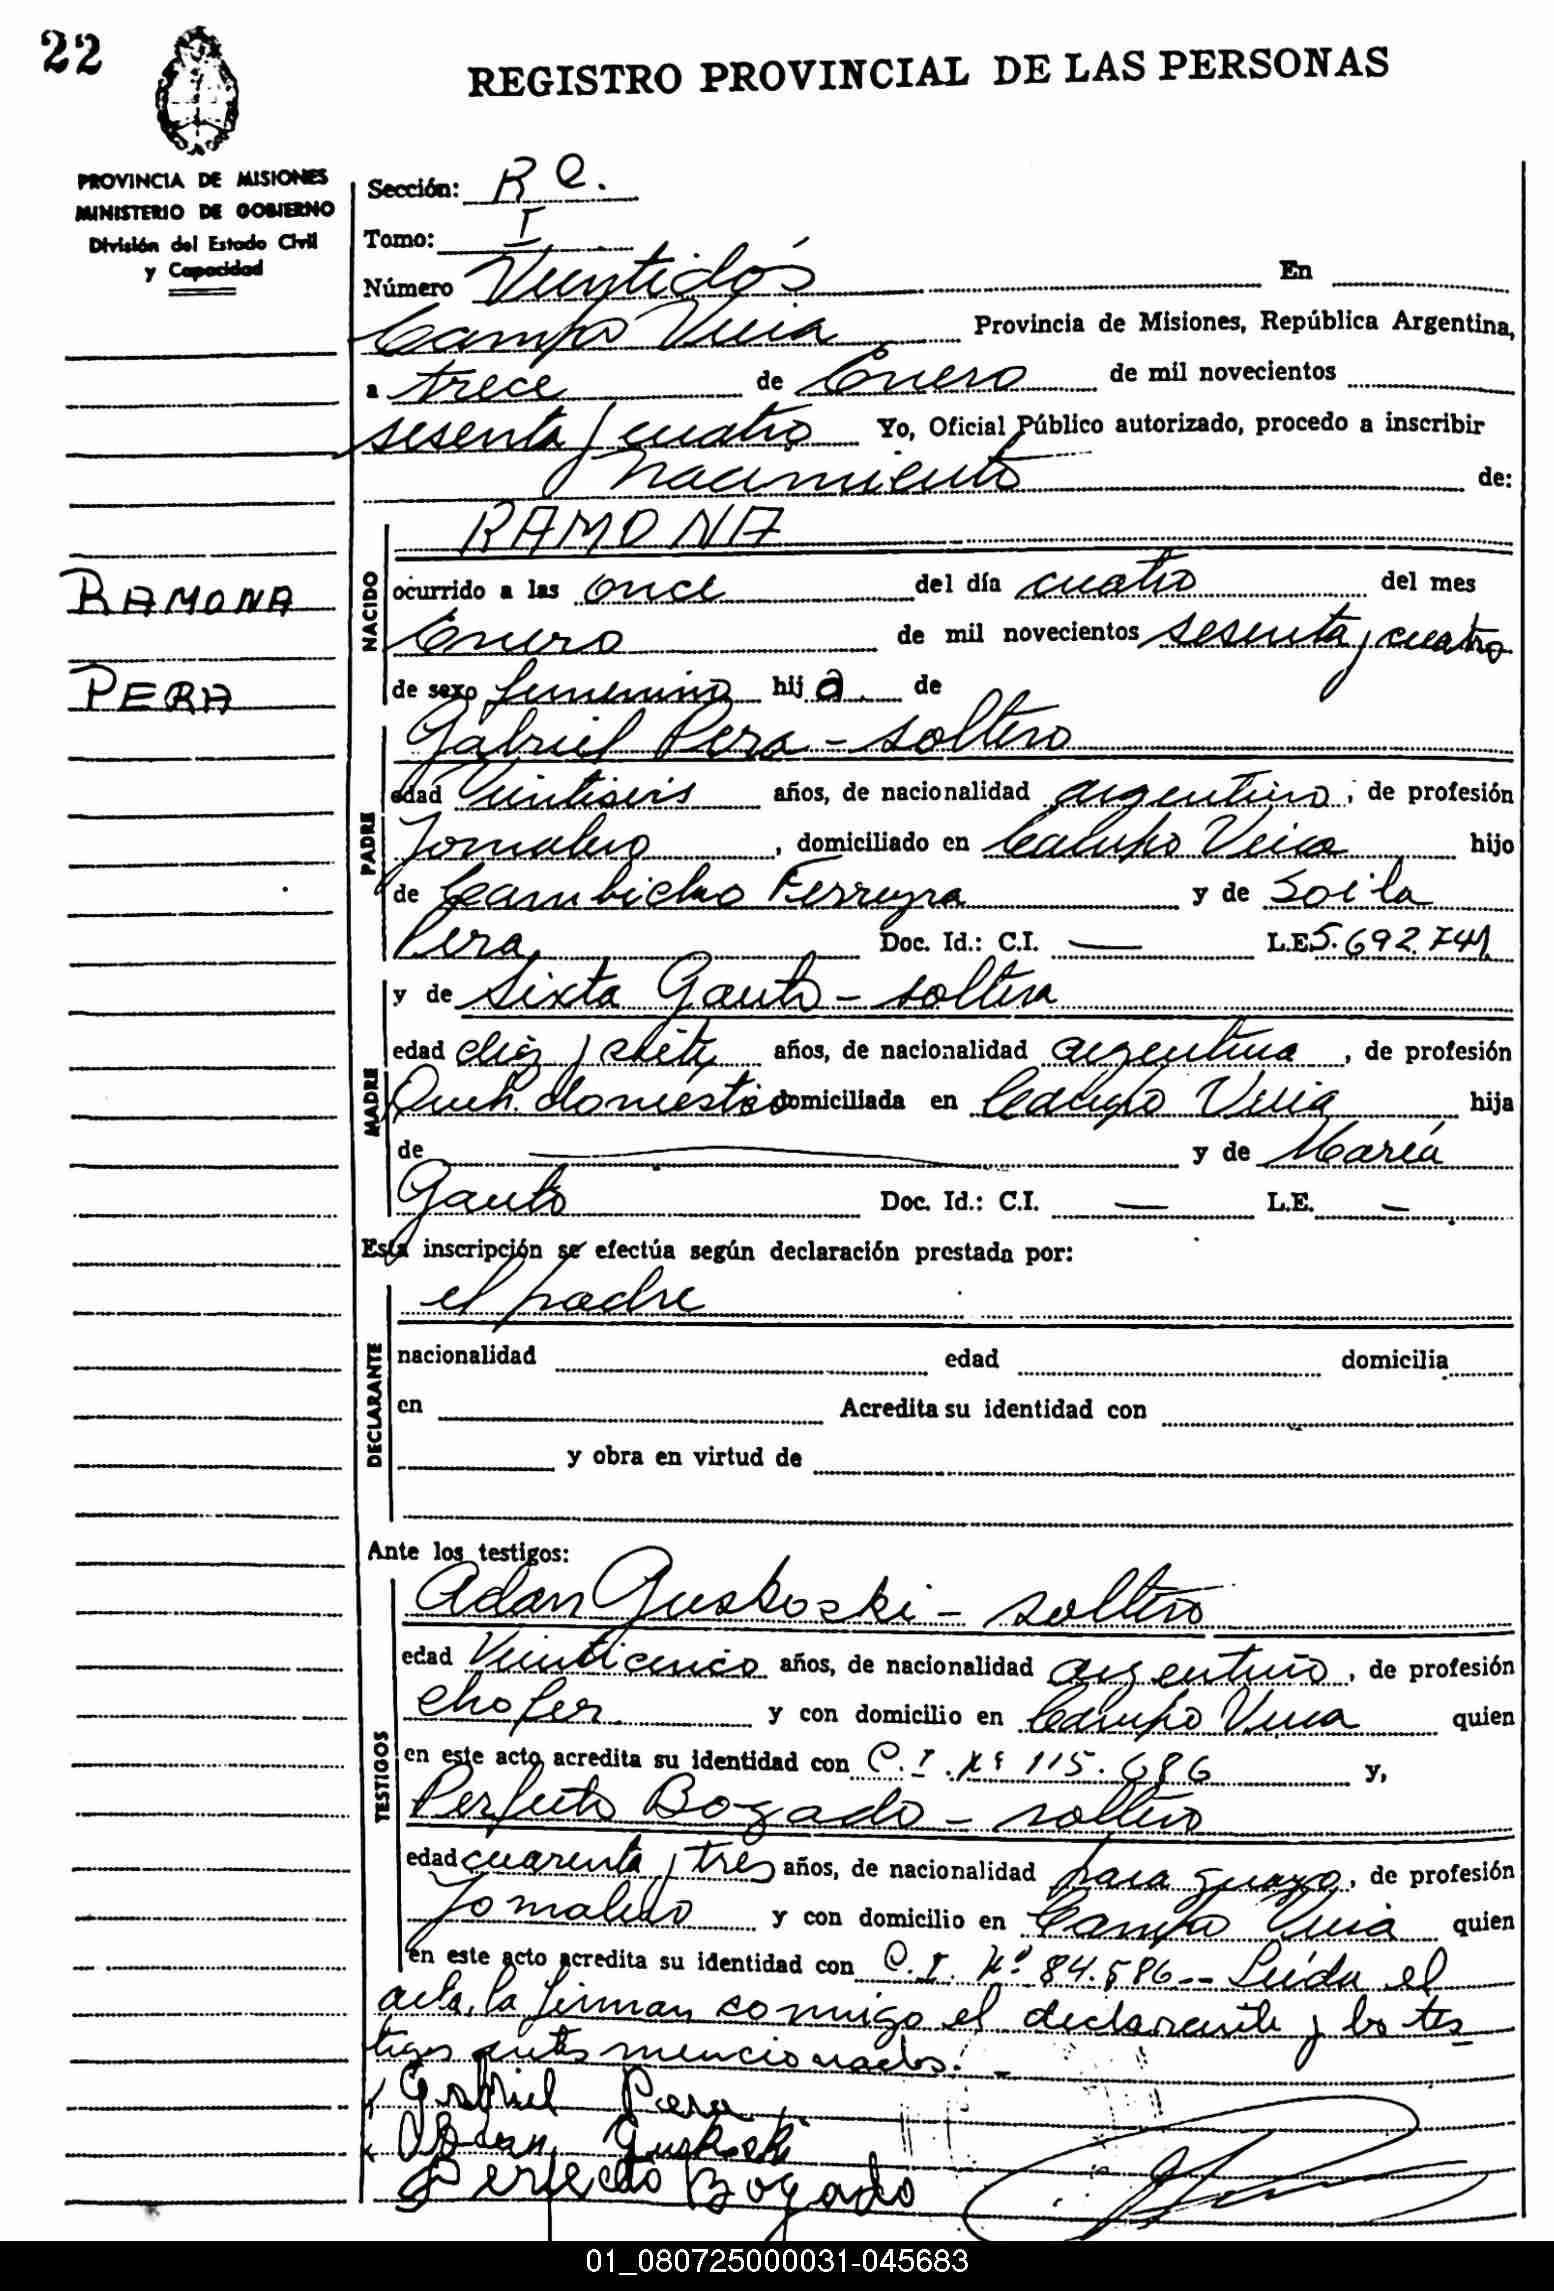 22
REGISTRO PROVINCIAL DE LAS PERSONAS
PROVINCIA DE MISIONES
MINISTERIO DE GOBIERNO
División del Estado Civil
y Capacidad
Sección: R
Tomo: I
Número Veintidós En
Campo Viera Provincia de Misiones, República Argentina,
a trece de Enero de mil novecientos
sesenta y cuatro Yo, Oficial Público autorizado, procedo a inscribir
nacimiento de:
RAMONA
PERA
NACIDO
RAMONA
ocurrido a las once del día cuatro del mes
Enero de mil novecientos sesenta y cuatro
de sexo femenino hija de
PADRE
Gabriel Pera - soltero
edad Veintiseis años, de nacionalidad argentino, de profesión
Jornalero, domiciliado en Campo Viera hijo
de Cambicho Ferreyra y de Soila
Pera Doc. Id.: C.I. — L.E. 5.692.741
MADRE
y de Sixta Gauto - soltera
edad diez y siete años, de nacionalidad argentina, de profesión
domiciliada en Campo Viera hija
de — y de María
Gauto Doc. Id.: C.I. — L.E. —
Esta inscripción se efectúa según declaración prestada por:
DECLARANTE
el padre
nacionalidad edad domicilia
en Acredita su identidad con
y obra en virtud de
Ante los testigos:
TESTIGOS
Adan Guskoski - soltero
edad Veinticinco años, de nacionalidad argentino, de profesión
chofer y con domicilio en Campo Viera quien
en este acto acredita su identidad con C.I. Nº 115.686 y,
Perfecto Bogado - soltero
edad cuarenta y tres años, de nacionalidad paraguayo, de profesión
Jornalero y con domicilio en Campo Viera quien
en este acto acredita su identidad con C.I. Nº 84.586 -- Leída el
acta, la firman conmigo el declarante y los tes
tigos antes mencionados. -
x Gabriel Pera
x Adan Guskoski
Perfecto Bogado
01_080725000031-045683